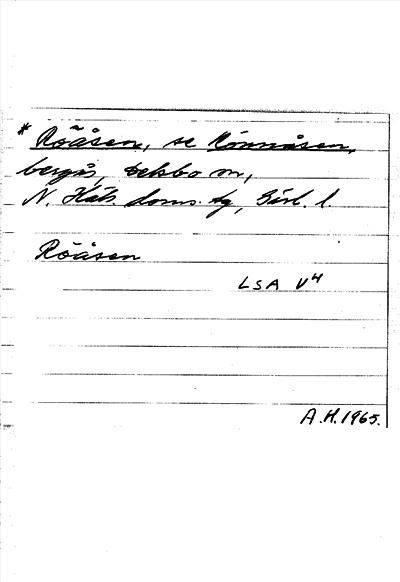 * Röåsen, se Rönnåsen,
bergås, Dekbo sn,
N. Häls. doms. tg, Gävl. l.
Röåsen
LSA V4
A.H. 1965.